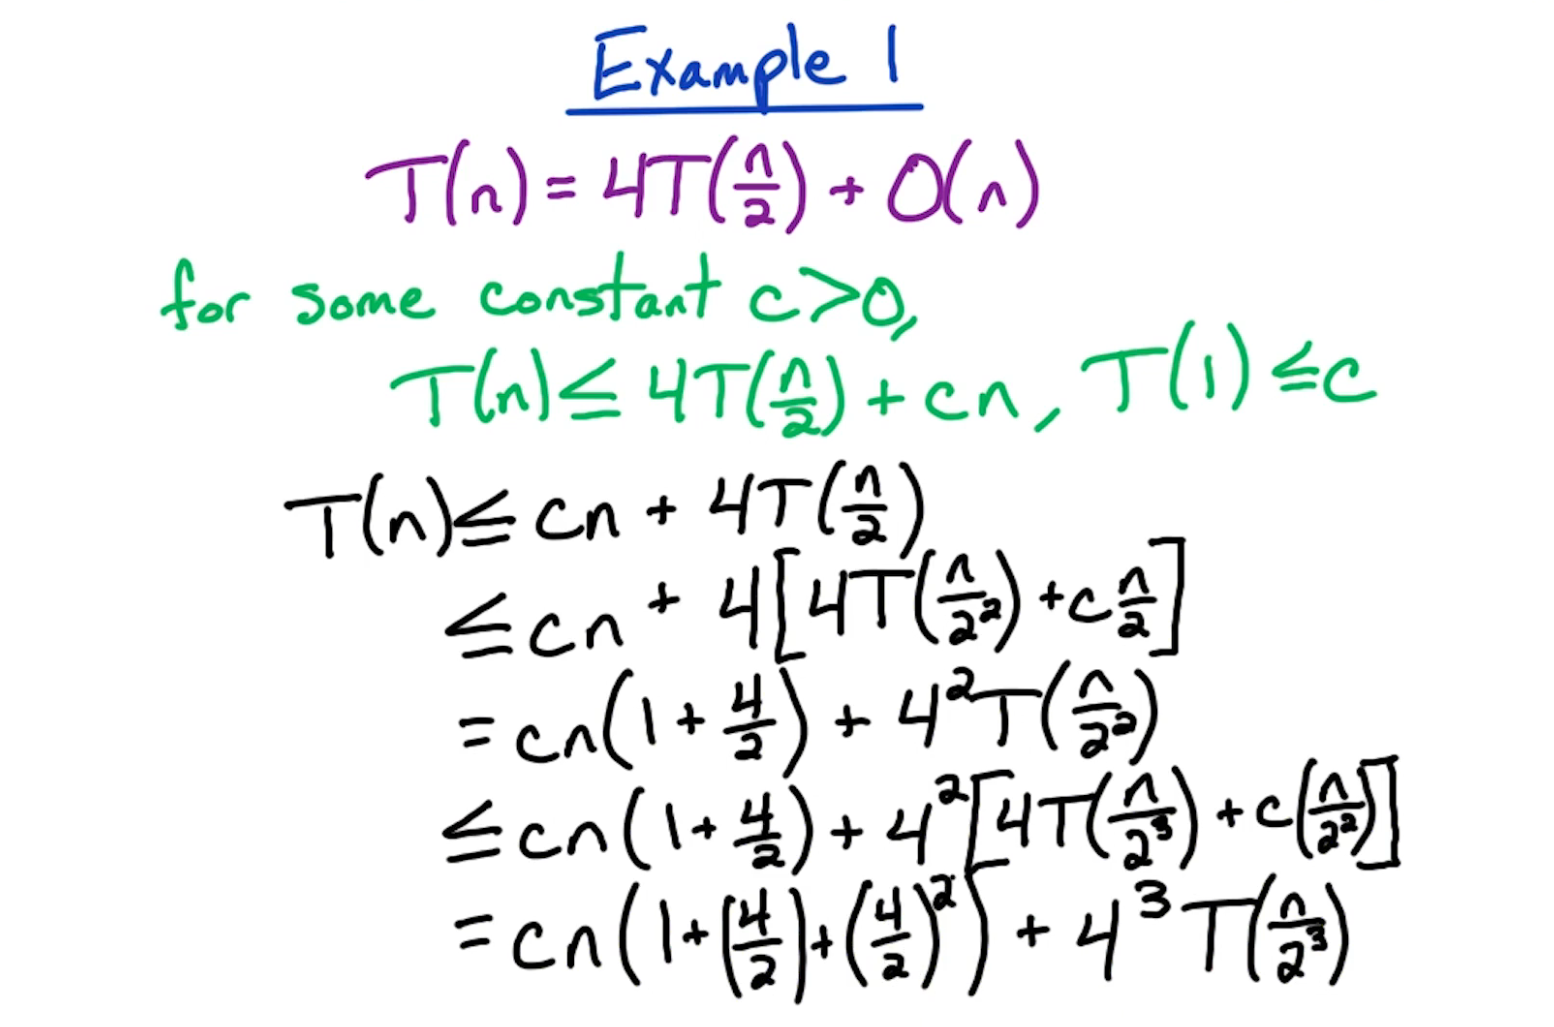 Example 1
T(n) = 4T(n/2) + O(n)
for some constant c>0,
T(n) ≤ 4T(n/2) + cn, T(1) ≤ c
T(n) ≤ cn + 4T(n/2)
≤ cn + 4[4T(n/2²) + c n/2]
= cn(1 + 4/2) + 4²T(n/2²)
≤ cn(1 + 4/2) + 4²[4T(n/2³) + c(n/2²)]
= cn(1 + (4/2) + (4/2)²) + 4³T(n/2³)